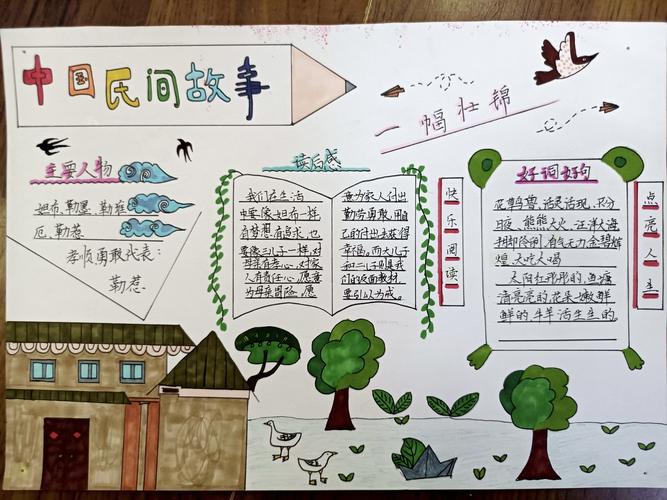 中国民间故事
一幅壮锦
主要人物
妲布、勒墨、勒堆
厄、勒惹
孝顺勇敢代表：
勒惹
读后感
我们在生活
中要像妲布一样
有梦想，有追求，也
要像三儿子一样，对
母亲有孝心，对家
人有责任心，愿意
为母亲冒险，愿
意为家人付出
勤劳勇敢，用自
己的付出去获得
幸福。而大儿子
和二儿子则是我
们的反面教材，
要引以为戒。
快乐阅读
好词好句
活灵活现、
日夜、熊熊大火、汪洋大海
有气无力、金碧辉
煌、大吃大喝
太阳红彤彤的，鱼塘
清亮亮的，花朵嫩鲜
鲜的，牛羊活生生的。
点亮人生